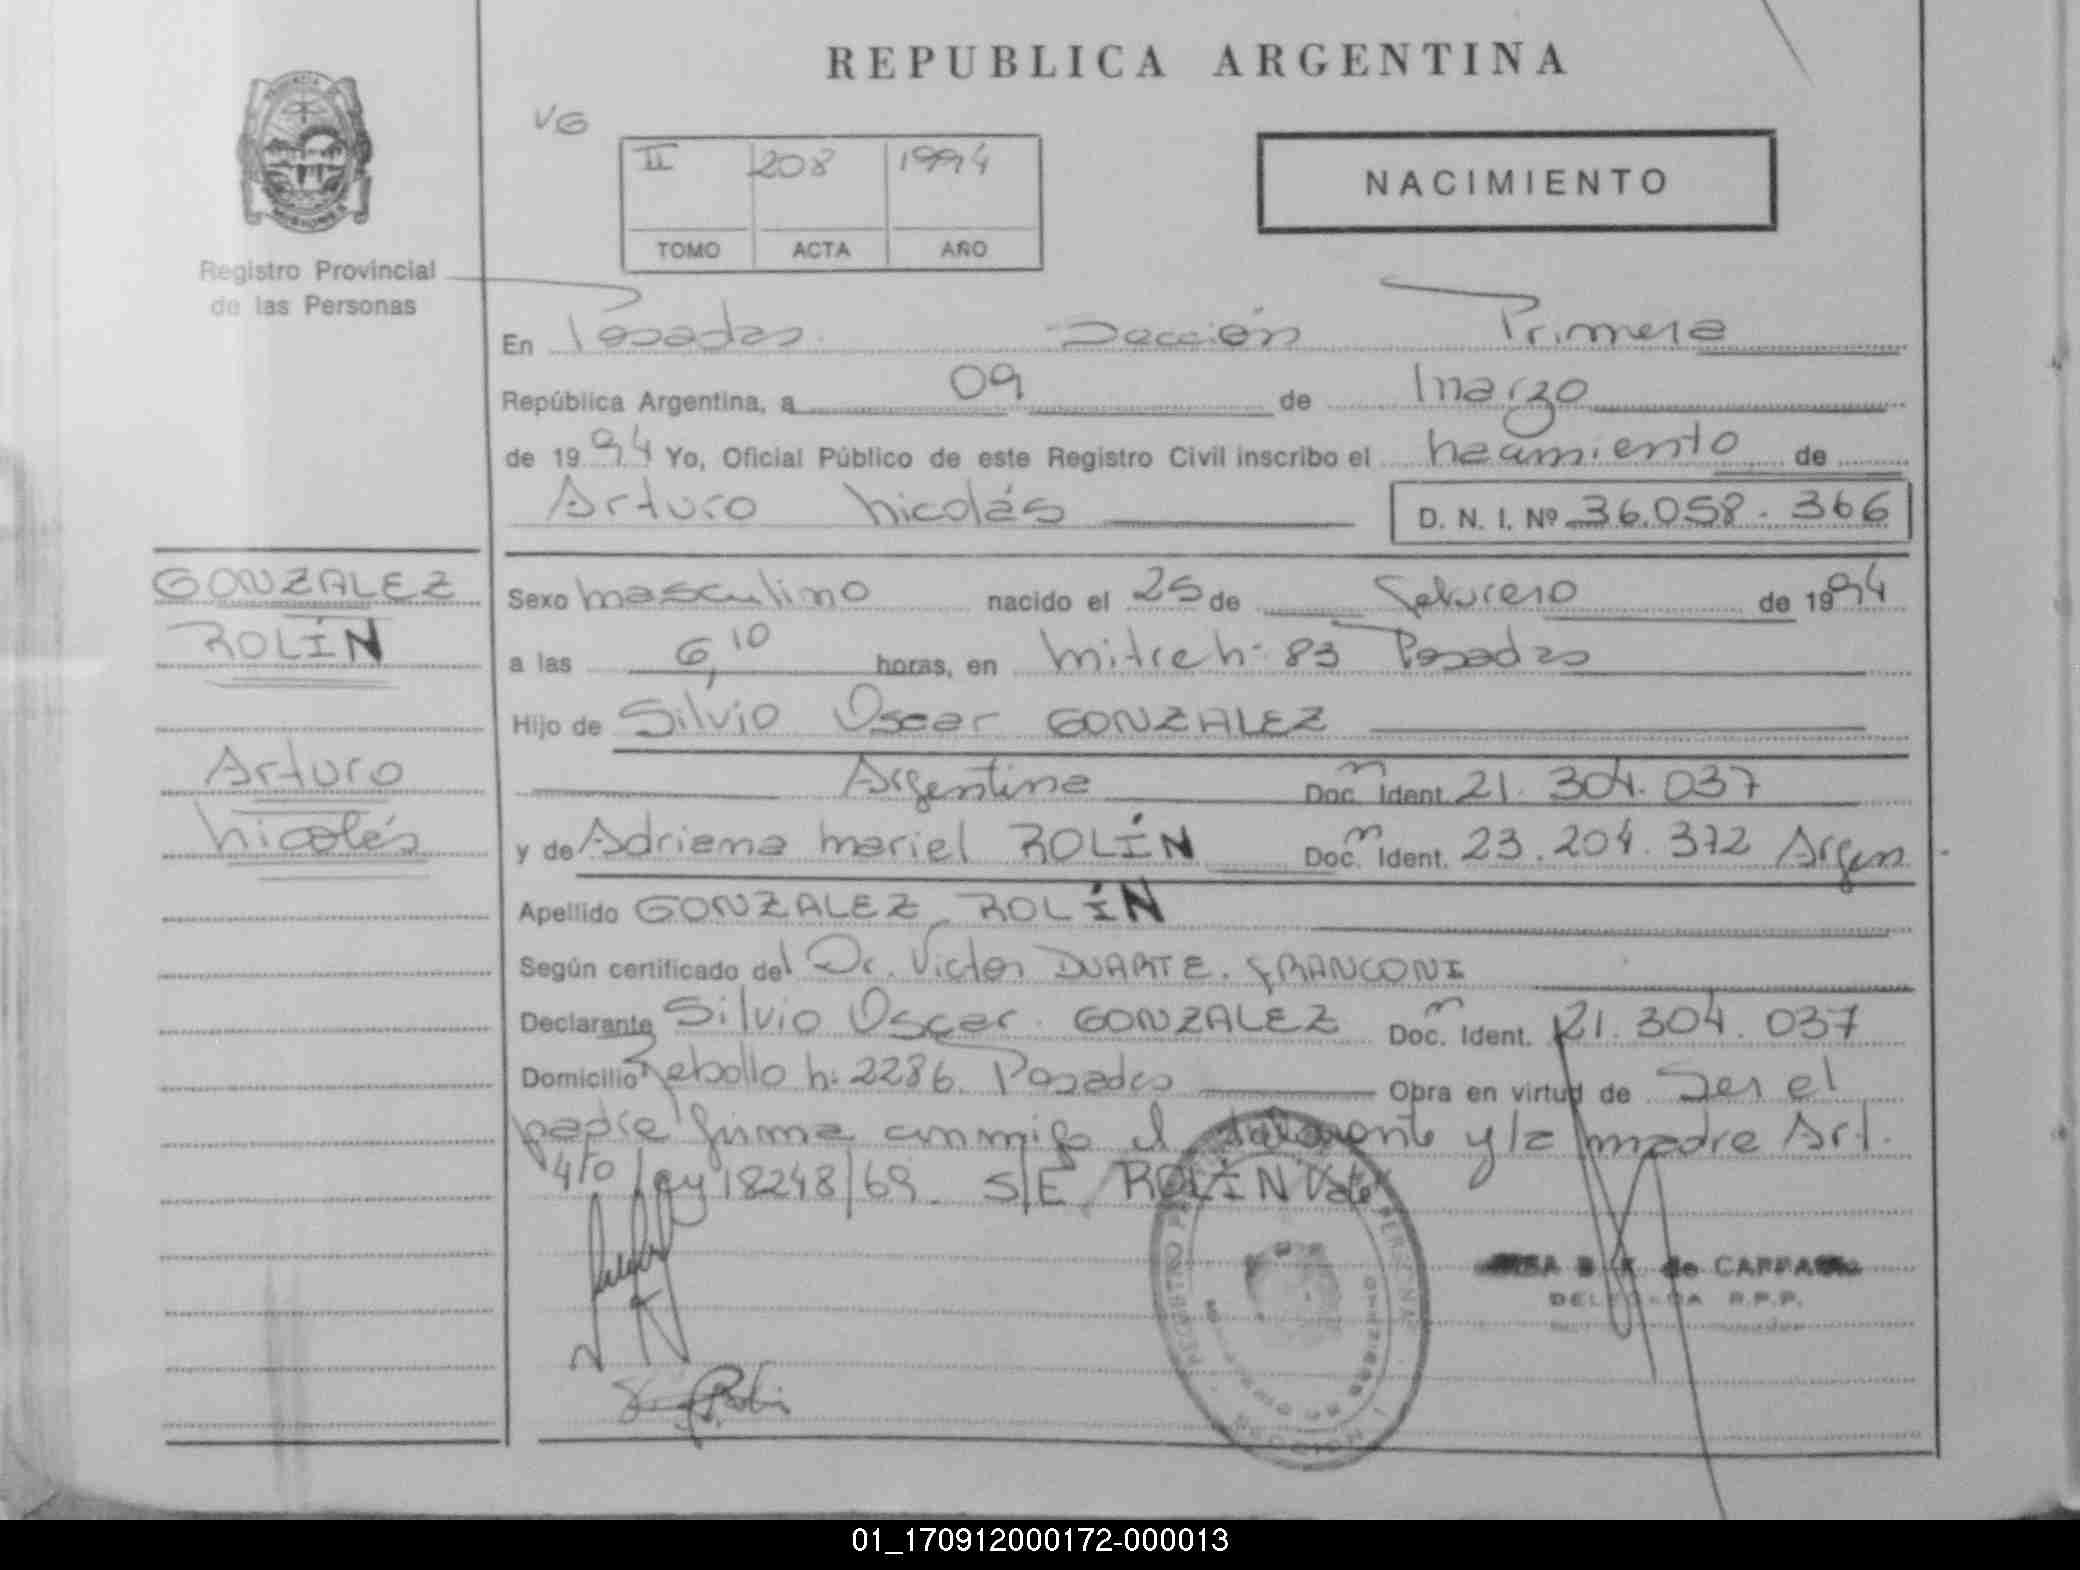 REPUBLICA ARGENTINA
VG
II 208 1994
TOMO ACTA AÑO
NACIMIENTO
Registro Provincial
de las Personas
En Posadas Sección Primera
República Argentina, a 09 de Marzo
de 1994 Yo, Oficial Público de este Registro Civil inscribo el nacimiento de
Arturo Nicolás D. N. I. Nº 36.058.366
GONZALEZ
ROLÍN
Arturo
Nicolás
Sexo masculino nacido el 25 de Febrero de 1994
a las 6,10 horas, en Mitre Nº 83 Posadas
Hijo de Silvio Oscar GONZALEZ
Argentina Doc. Ident. 21.304.037
y de Adriana Mariel ROLÍN Doc. Ident. 23.204.372 Argen
Apellido GONZALEZ ROLÍN
Según certificado del Dr. Victor DUARTE. FRANCONI
Declarante Silvio Oscar GONZALEZ Doc. Ident. 21.304.037
Domicilio Rebollo Nº 2286. Posadas Obra en virtud de Ser el
padre firma conmigo el declarante y la madre Art.
4to ley 18248/69. S/E ROLÍN Vale
de CARRA
DELEGADA R.P.P.
01_170912000172-000013